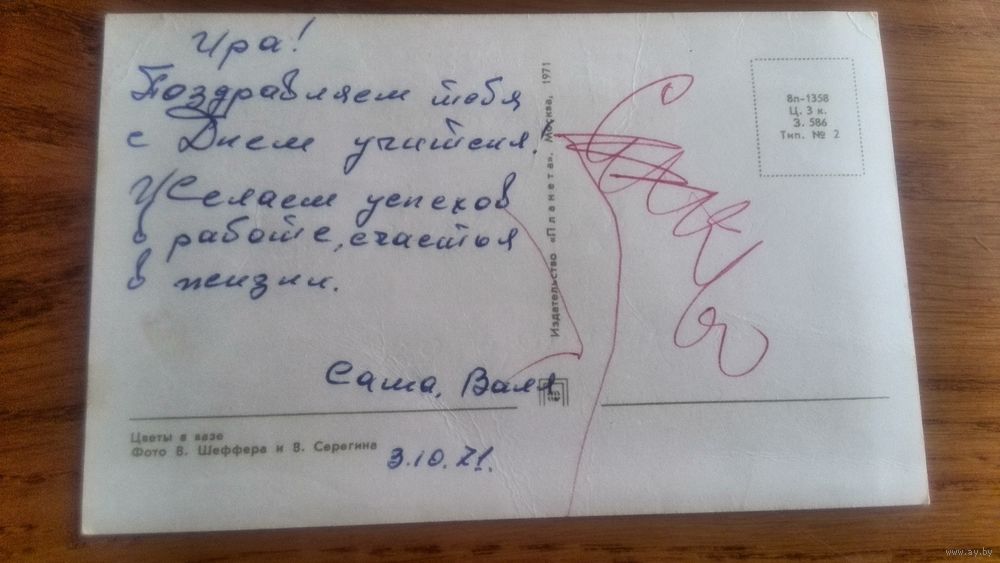 Ира!
Поздравляем тебя
с Днем учителя.
Желаем успехов
в работе, счастья
в жизни.
Саша, Валя
3.10.71.
Цветы в вазе
Фото В. Шеффера и В. Серегина
Издательство «Планета». Москва, 1971
8п-1358
Ц. 3 к.
З. 586
Тип. № 2
www.ay.by